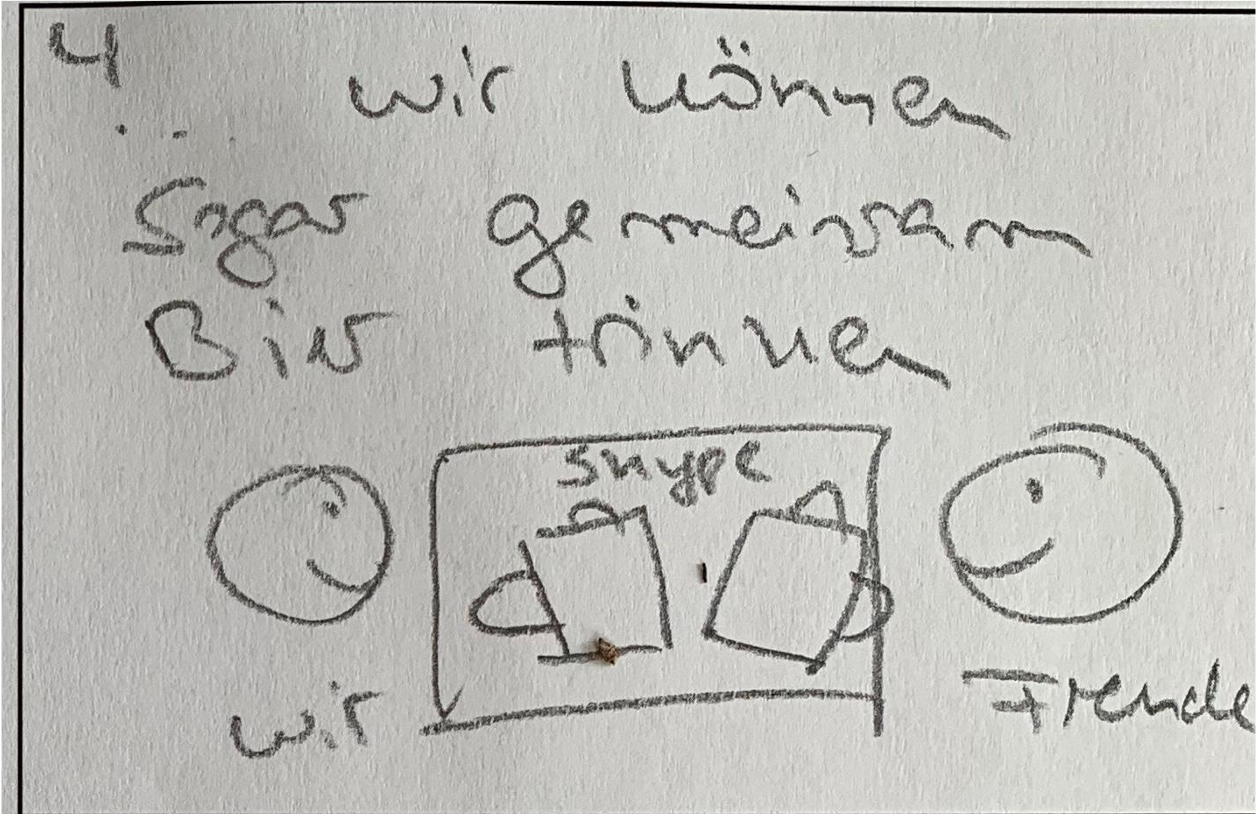 4
... wir können
Sogar gemeinsam
Bier trinken
Skype
wir Freunde